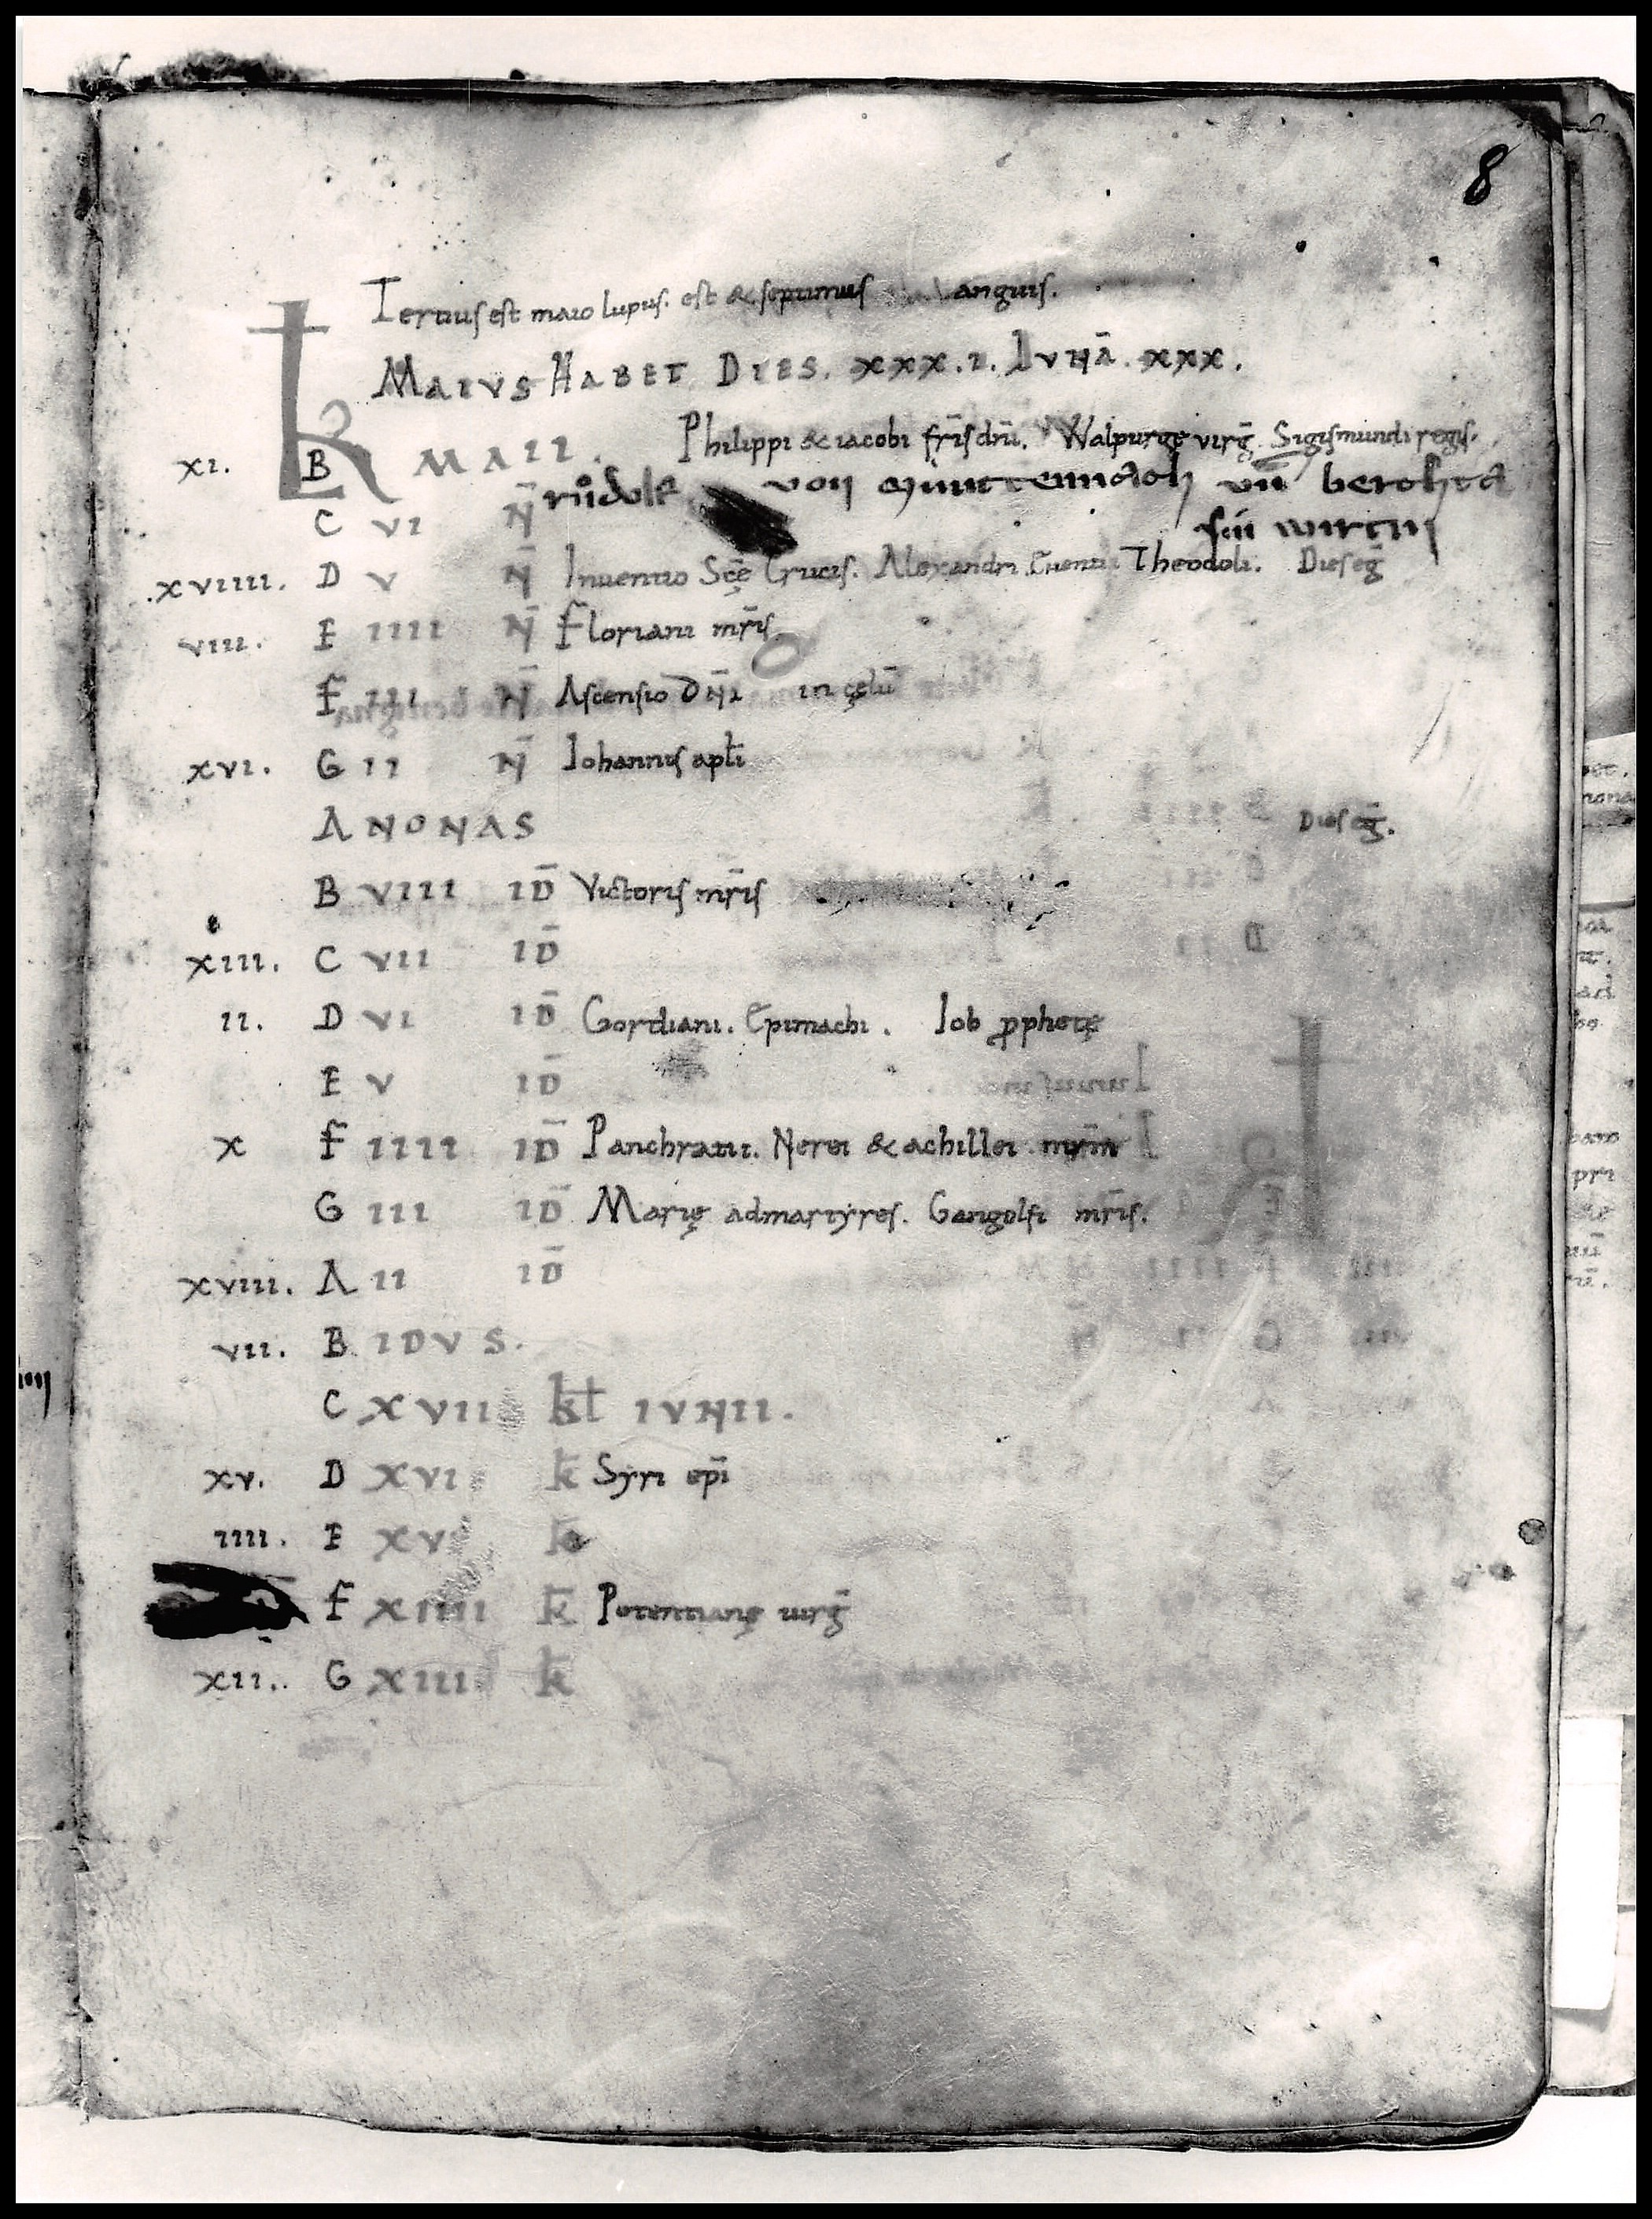 8
Tertius est maio lupus. est & septimus anguis.
MAIVS HABET DIES. XXX.I. LVNĀ. XXX.
xi. KL B MAII. Philippi & iacobi fr̄is dn̄i. Walpurgę virḡ Sigismundi regis.
růdolf von muntennach vn̄ berchta
C VI N̄ sin wirtin
.xviiii. D V N̄ Inuentio Scę̄ Crucis. Alexandri. Euentii Theodoli. Dies eḡ
viii. E IIII N̄ Floriani mr̄is
F III N̄ Ascensio Dn̄i in cęlū
xvi. G II N̄ Iohannis apl̄i
A NONAS Dies eḡ.
B VIII ID̄ Victoris mr̄is
xiii. C VII ID̄
ii. D VI ID̄ Gordiani. Epimachi. Iob ꝓphetę
E V ID̄
x F IIII ID̄ Panchratii. Nerei & achillei mr̄m
G III ID̄ Marię admartyres. Gangolfi mr̄is.
xviii. A II ID̄
vii. B IDVS.
C XVII kł IVNII.
xv. D XVI k̄ Syri ep̄i
iiii. E XV k̄
F XIIII k̄ Potentianę uirḡ
xii. G XIII k̄